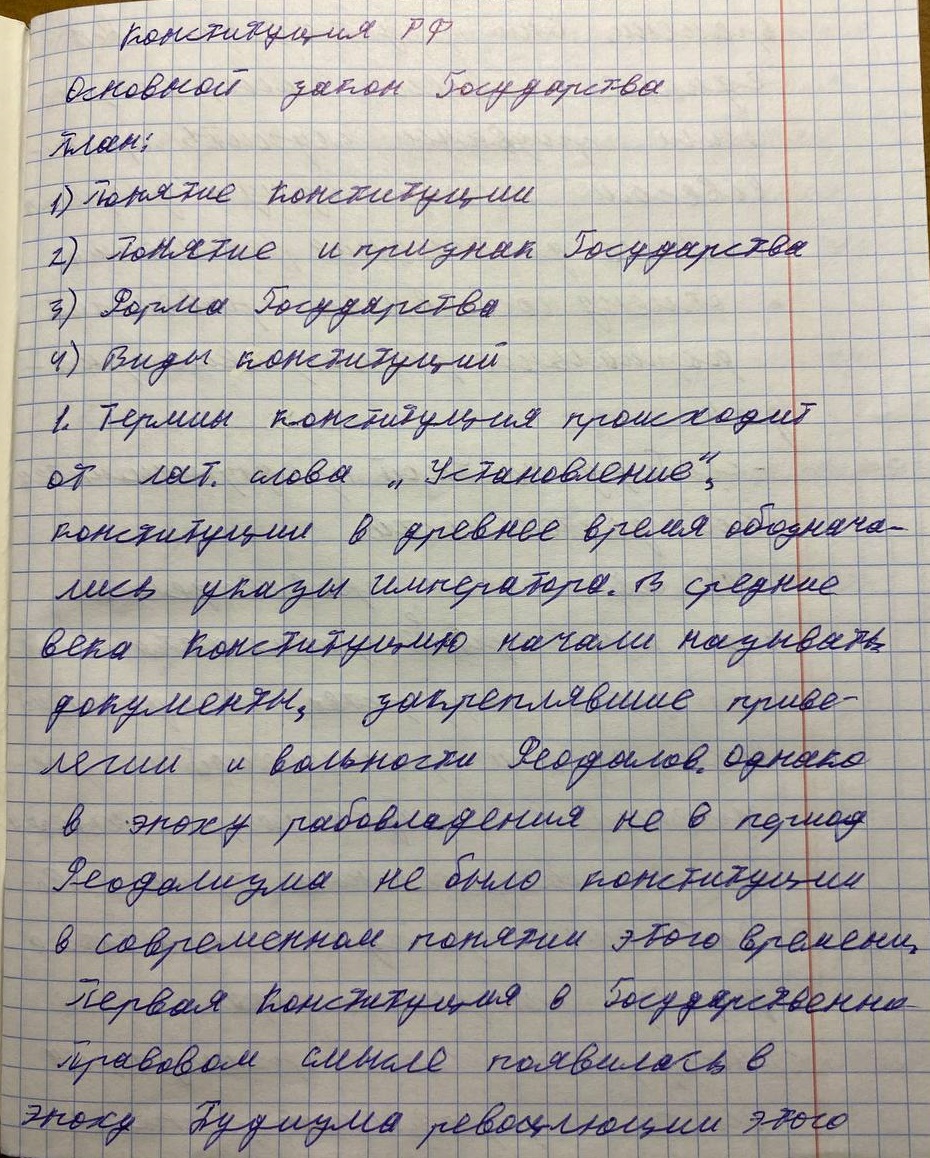 Конституция РФ
Основной закон Государства
План:
1) Понятие Конституции
2) Понятие и признак Государства
3) Форма Государства
4) Виды конституций
1. Термин конституция происходит
от лат. слова „Установление",
конституции в древнее время обознача-
лись указы императора. В средние
века Конституцию начали называть
документы, закреплявшие приве-
легии и вольности Феодалов. Однако
в эпоху рабовладения не в период
Феодализма не было конституции
в современном понятии этого времени,
Первая Конституция в Государственно
Правовом смысле появилась в
эпоху революции этого